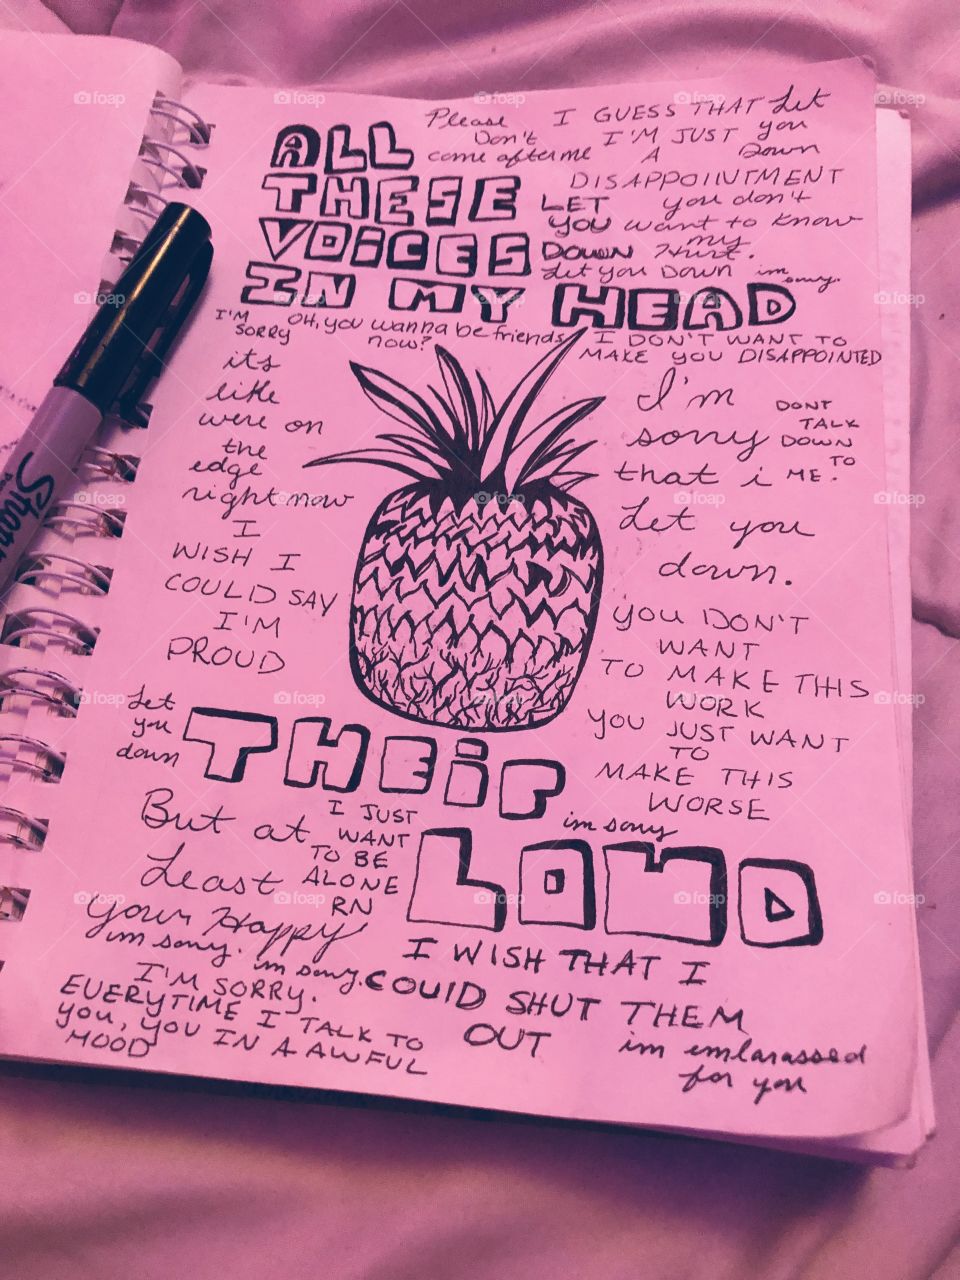 Please
Don't
come after me
I GUESS THAT
I'M JUST
A
DISAPPOINTMENT
Let
you
Down
ALL
THESE
VOICES
IN MY HEAD
LET
YOU
DOWN
you don't
want to know
my
Hurt.
Let you Down
im
sorry.
I'M
SORRY
OH, you wanna be friends
now?
I DON'T WANT TO
MAKE you DISAPPOINTED
its
like
were on
the
edge
right now
I
WISH I
COULD SAY
I'M
PROUD
I'm
sorry
that i
Let you
down.
DONT
TALK
DOWN
TO
ME.
you DON'T
WANT
TO MAKE THIS
WORK
you JUST WANT
TO
MAKE THIS
WORSE
Let
you
down
THEir
LOUD
im sorry
I JUST
WANT
TO BE
ALONE
RN
But at
Least
your Happy
im sorry.
im sorry.
I'M SORRY.
EVERYTIME I TALK TO
you, you IN A AWFUL
MOOD
I WISH THAT I
COUlD SHUT THEM
OUT
im embarassed
for you
Shar
foap